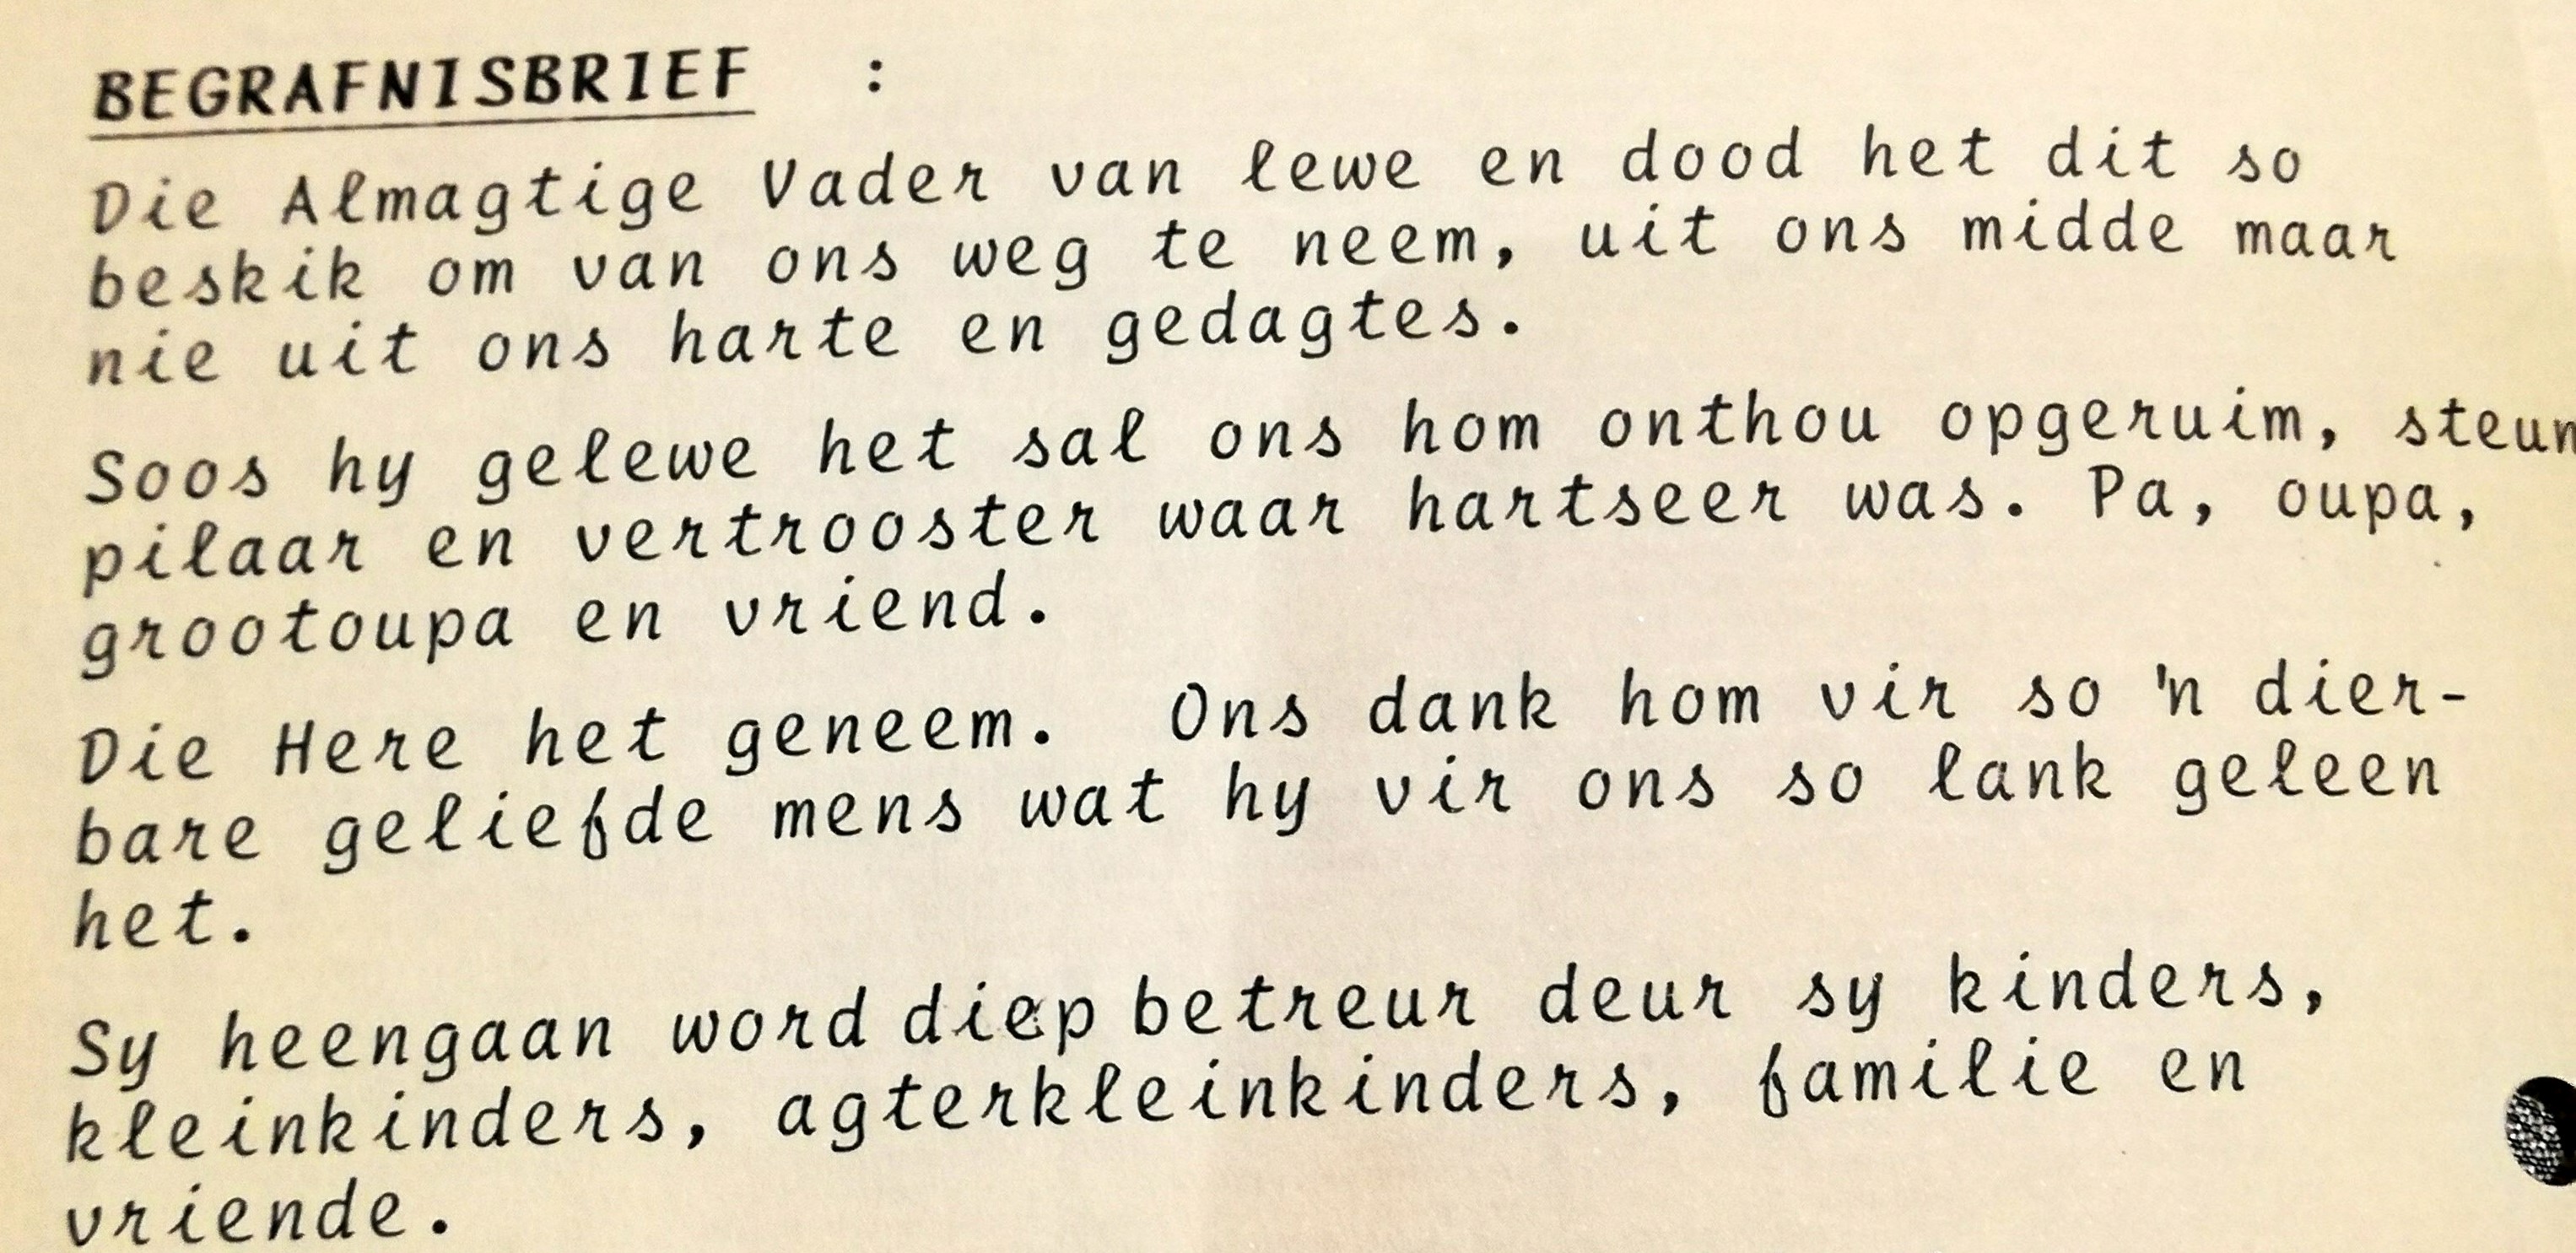 BEGRAFNISBRIEF :
Die Almagtige Vader van lewe en dood het dit so
beskik om van ons weg te neem, uit ons midde maar
nie uit ons harte en gedagtes.
Soos hy gelewe het sal ons hom onthou opgeruim, steun
pilaar en vertrooster waar hartseer was. Pa, oupa,
grootoupa en vriend.
Die Here het geneem. Ons dank hom vir so 'n dier-
bare geliefde mens wat hy vir ons so lank geleen
het.
Sy heengaan word diep betreur deur sy kinders,
kleinkinders, agterkleinkinders, familie en
vriende.